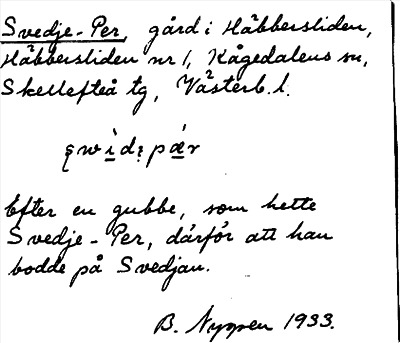 Svedje-Per, gård i Häbbersliden,
Häbbersliden nr 1, Kågedalens sn,
Skellefteå tg, Västerb. l.
Efter en gubbe, som hette
Svedje-Per, därför att han
bodde på Svedjan.
B. Nyppen 1933.